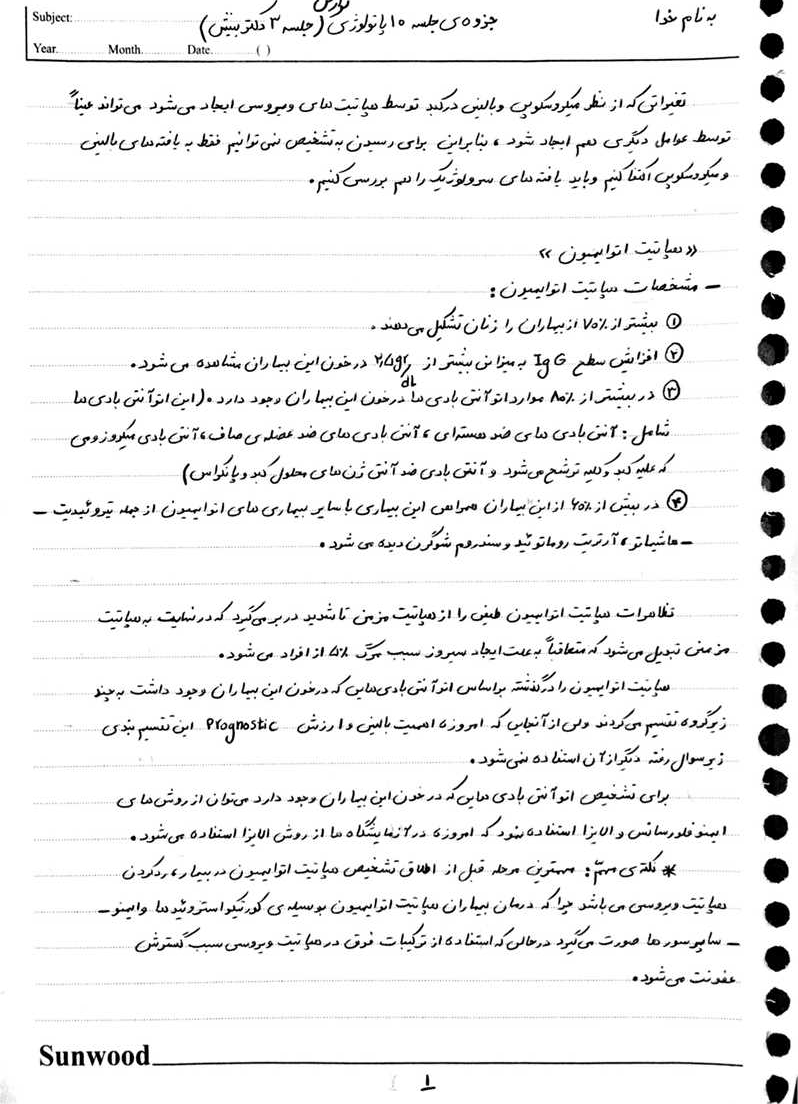 به نام خدا
گوارش
جزوه‌ی جلسه ۱۰ پاتولوژی (جلسه ۳ دکتر بینش)
Subject:
Year. Month. Date. ( )
تغییراتی که از نظر میکروسکوپی و بالینی در کبد توسط هپاتیت های ویروسی ایجاد می شود می تواند عیناً
توسط عوامل دیگری هم ایجاد شود ، بنابراین برای رسیدن به تشخیص نمی توانیم فقط به یافته های بالینی
و میکروسکوپی اکتفا کنیم و باید یافته های سرولوژیک را هم بررسی کنیم.
«هپاتیت اتوایمیون»
- مشخصات هپاتیت اتوایمیون :
① بیشتر از ۷۰٪ از بیماران را زنان تشکیل می دهند.
② افزایش سطح IgG به میزانی بیشتر از ۲,۵gr/dL در خون این بیماران مشاهده می شود.
③ در بیشتر از ۸۰٪ موارد اتوآنتی بادی ها در خون این بیماران وجود دارد. (این اتوآنتی بادی ها
شامل : آنتی بادی های ضد هسته ای ، آنتی بادی های ضد عضله ی صاف ، آنتی بادی میکروزومی
که علیه کبد و کلیه ترشح می شود و آنتی بادی ضد آنتی ژن های محلول کبد و پانکراس)
④ در بیش از ۶۰٪ از این بیماران همراهی این بیماری با سایر بیماری های اتوایمیون از جمله تیروئیدیت -
- هاشیماتو ، آرتریت روماتوئید و سندروم شوگرن دیده می شود.
تظاهرات هپاتیت اتوایمیون طیفی را از هپاتیت مزمن تا شدید در بر می گیرد که در نهایت به هپاتیت
مزمنی تبدیل می شود که متعاقباً به علت ایجاد سیروز سبب مرگ ۵٪ از افراد می شود.
هپاتیت اتوایمیون را در گذشته بر اساس اتوآنتی بادی هایی که در خون این بیماران وجود داشت به چند
زیرگروه تقسیم می کردند ولی از آنجایی که امروزه اهمیت بالینی و ارزش Prognostic این تقسیم بندی
زیر سوال رفته دیگر از آن استفاده نمی شود.
برای تشخیص اتوآنتی بادی هایی که در خون این بیماران وجود دارد می توان از روش های
ایمنوفلورسانس و الایزا استفاده نمود که امروزه در آزمایشگاه ها از روش الایزا استفاده می شود.
* نکته ی مهم : مهمترین مرحله قبل از اطلاق تشخیص هپاتیت اتوایمیون در بیمار ، رد کردن
هپاتیت ویروسی می باشد چرا که درمان بیماران هپاتیت اتوایمیون بوسیله ی کورتیکواستروئیدها و ایمنو -
- ساپرسورها صورت می گیرد در حالی که استفاده از ترکیبات فوق در هپاتیت ویروسی سبب گسترش
عفونت می شود.
Sunwood
۱